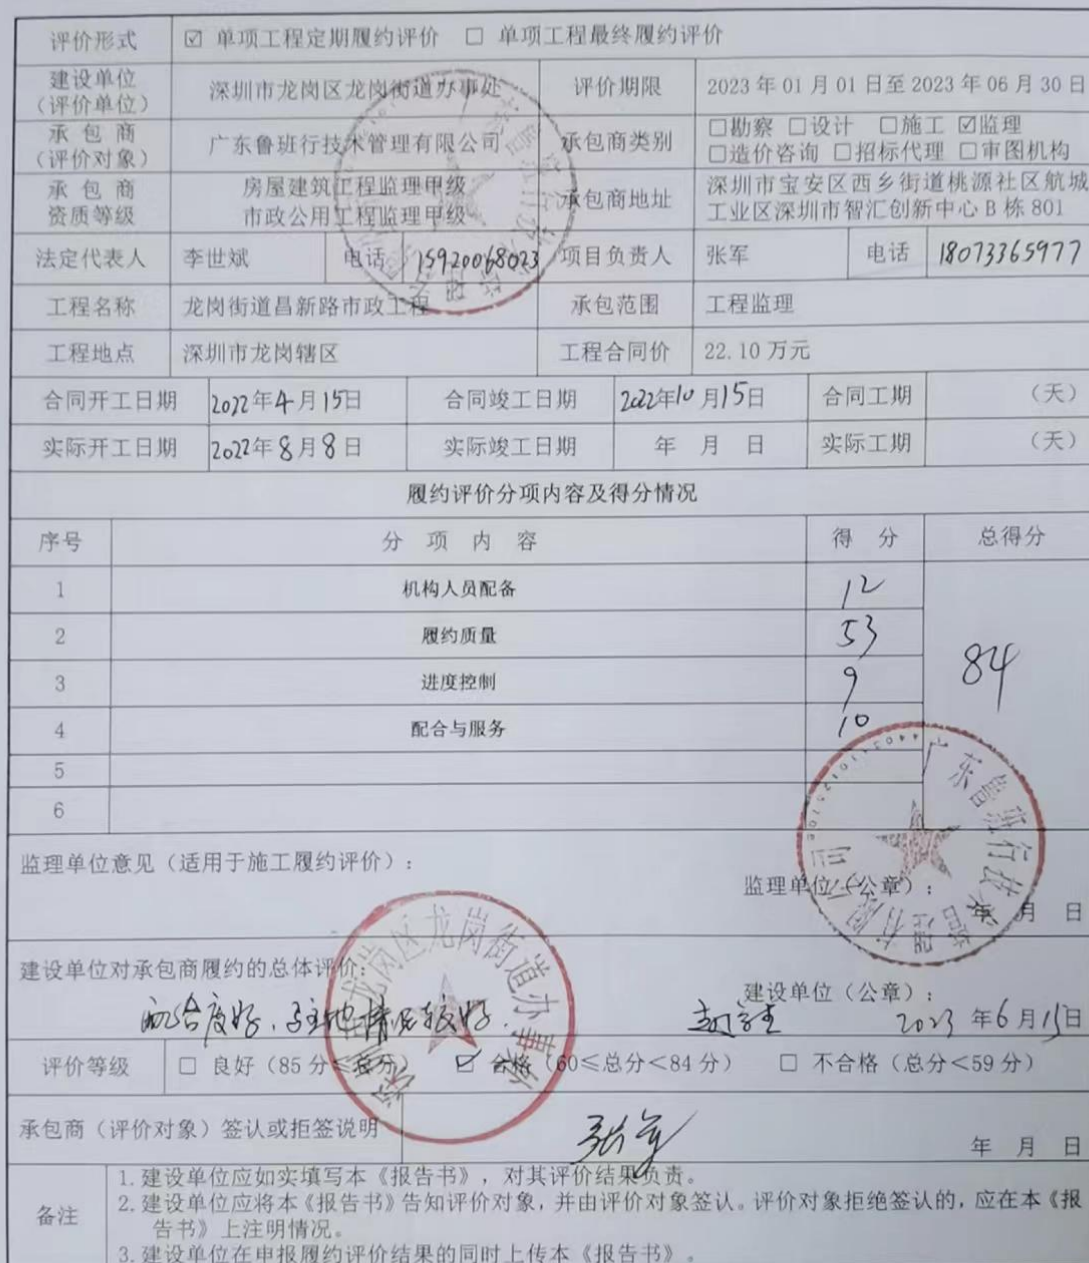 评价形式 ☑ 单项工程定期履约评价 □ 单项工程最终履约评价
建设单位（评价单位） 深圳市龙岗区龙岗街道办事处 评价期限 2023年01月01日至2023年06月30日
承包商（评价对象） 广东鲁班行技术管理有限公司 承包商类别 □勘察 □设计 □施工 ☑监理
□造价咨询 □招标代理 □审图机构
承包商资质等级 房屋建筑工程监理甲级 市政公用工程监理甲级 承包商地址 深圳市宝安区西乡街道桃源社区航城工业区深圳市智汇创新中心B栋801
法定代表人 李世斌 电话 15920068023 项目负责人 张军 电话 18073365977
工程名称 龙岗街道昌新路市政工程 承包范围 工程监理
工程地点 深圳市龙岗辖区 工程合同价 22.10万元
合同开工日期 2022年4月15日 合同竣工日期 2022年10月15日 合同工期 （天）
实际开工日期 2022年8月8日 实际竣工日期 年 月 日 实际工期 （天）
履约评价分项内容及得分情况
序号 分项内容 得分 总得分
1 机构人员配备 12
2 履约质量 53
3 进度控制 9
84
4 配合与服务 10
5
6
监理单位意见（适用于施工履约评价）：
监理单位（公章）：
年 月 日
广东鲁班行技术管理有限公司
建设单位对承包商履约的总体评价：
建设单位（公章）：
配合度好，情况较好。
2023年6月15日
评价等级 □ 良好（85分≤总分） ☑ 合格（60≤总分<84分） □ 不合格（总分<59分）
承包商（评价对象）签认或拒签说明 张军
年 月 日
备注
1.建设单位应如实填写本《报告书》，对其评价结果负责。
2.建设单位应将本《报告书》告知评价对象，并由评价对象签认。评价对象拒绝签认的，应在本《报
告书》上注明情况。
3.建设单位在申报履约评价结果的同时上传本《报告书》。